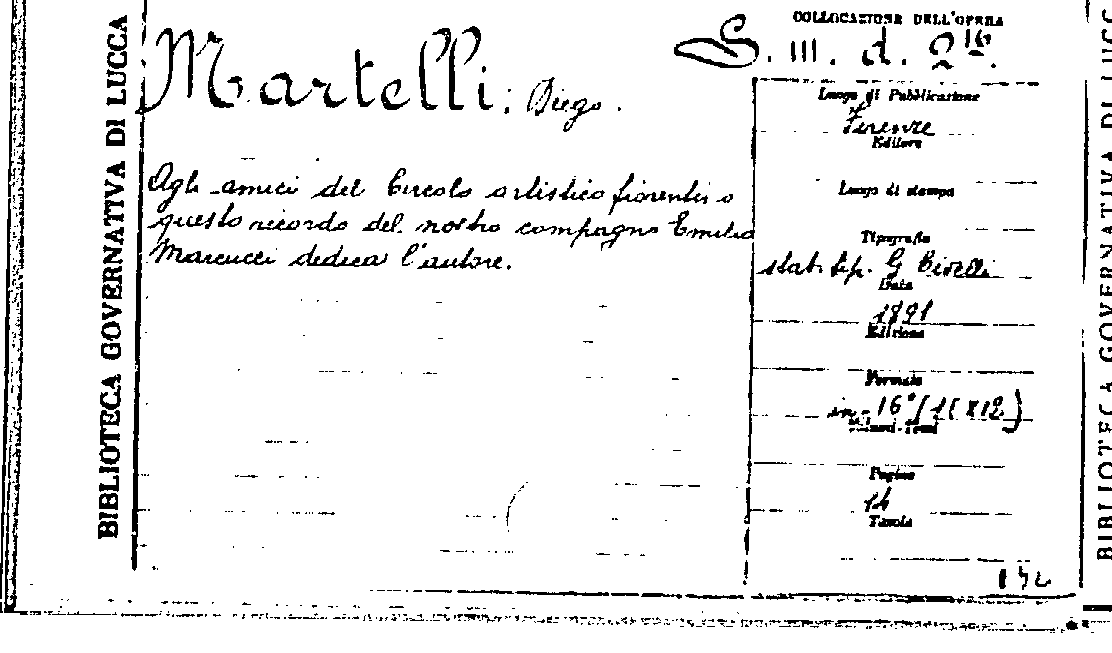 BIBLIOTECA GOVERNATIVA DI LUCCA
Martelli: Diego.
Agli amici del Circolo artistico fiorentino
questo ricordo del nostro compagno Emilio
Marcucci dedica l'autore.
COLLOCAZIONE DELL'OPERA
S. III. d. 216.
Luogo di Pubblicazione
Firenze
Editore
Luogo di stampa
Tipografia
stab. tip. G Civelli
Data
1891
Edizione
Formato
in-16°
Pagine
14
Tavole
BIBLIOTECA GOVERNATIVA DI LUCC